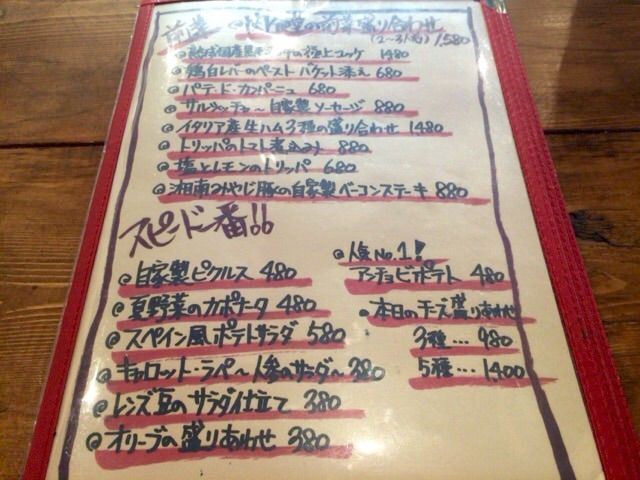 前菜
の前菜盛り合わせ
(2〜3人前) 1,580
極上コッケ 1480
鶏白レバーのペースト バケット添え 680
パテ・ド・カンパーニュ 680
サルシッチャ〜自家製ソーセージ 880
イタリア産生ハム3種の盛り合わせ 1480
トリッパのトマト煮込み 880
塩とレモンのトリッパ 680
湘南みやじ豚の自家製ベーコンステーキ 880
スピード一番!!
自家製ピクルス 480
夏野菜のカポナータ 480
スペイン風ポテトサラダ 580
キャロット・ラペ〜人参のサラダ〜 380
レンズ豆のサラダ仕立て 380
オリーブの盛りあわせ 380
人気No.1!
アンチョビポテト 480
本日のチーズ盛りあわせ
3種… 980
5種… 1400